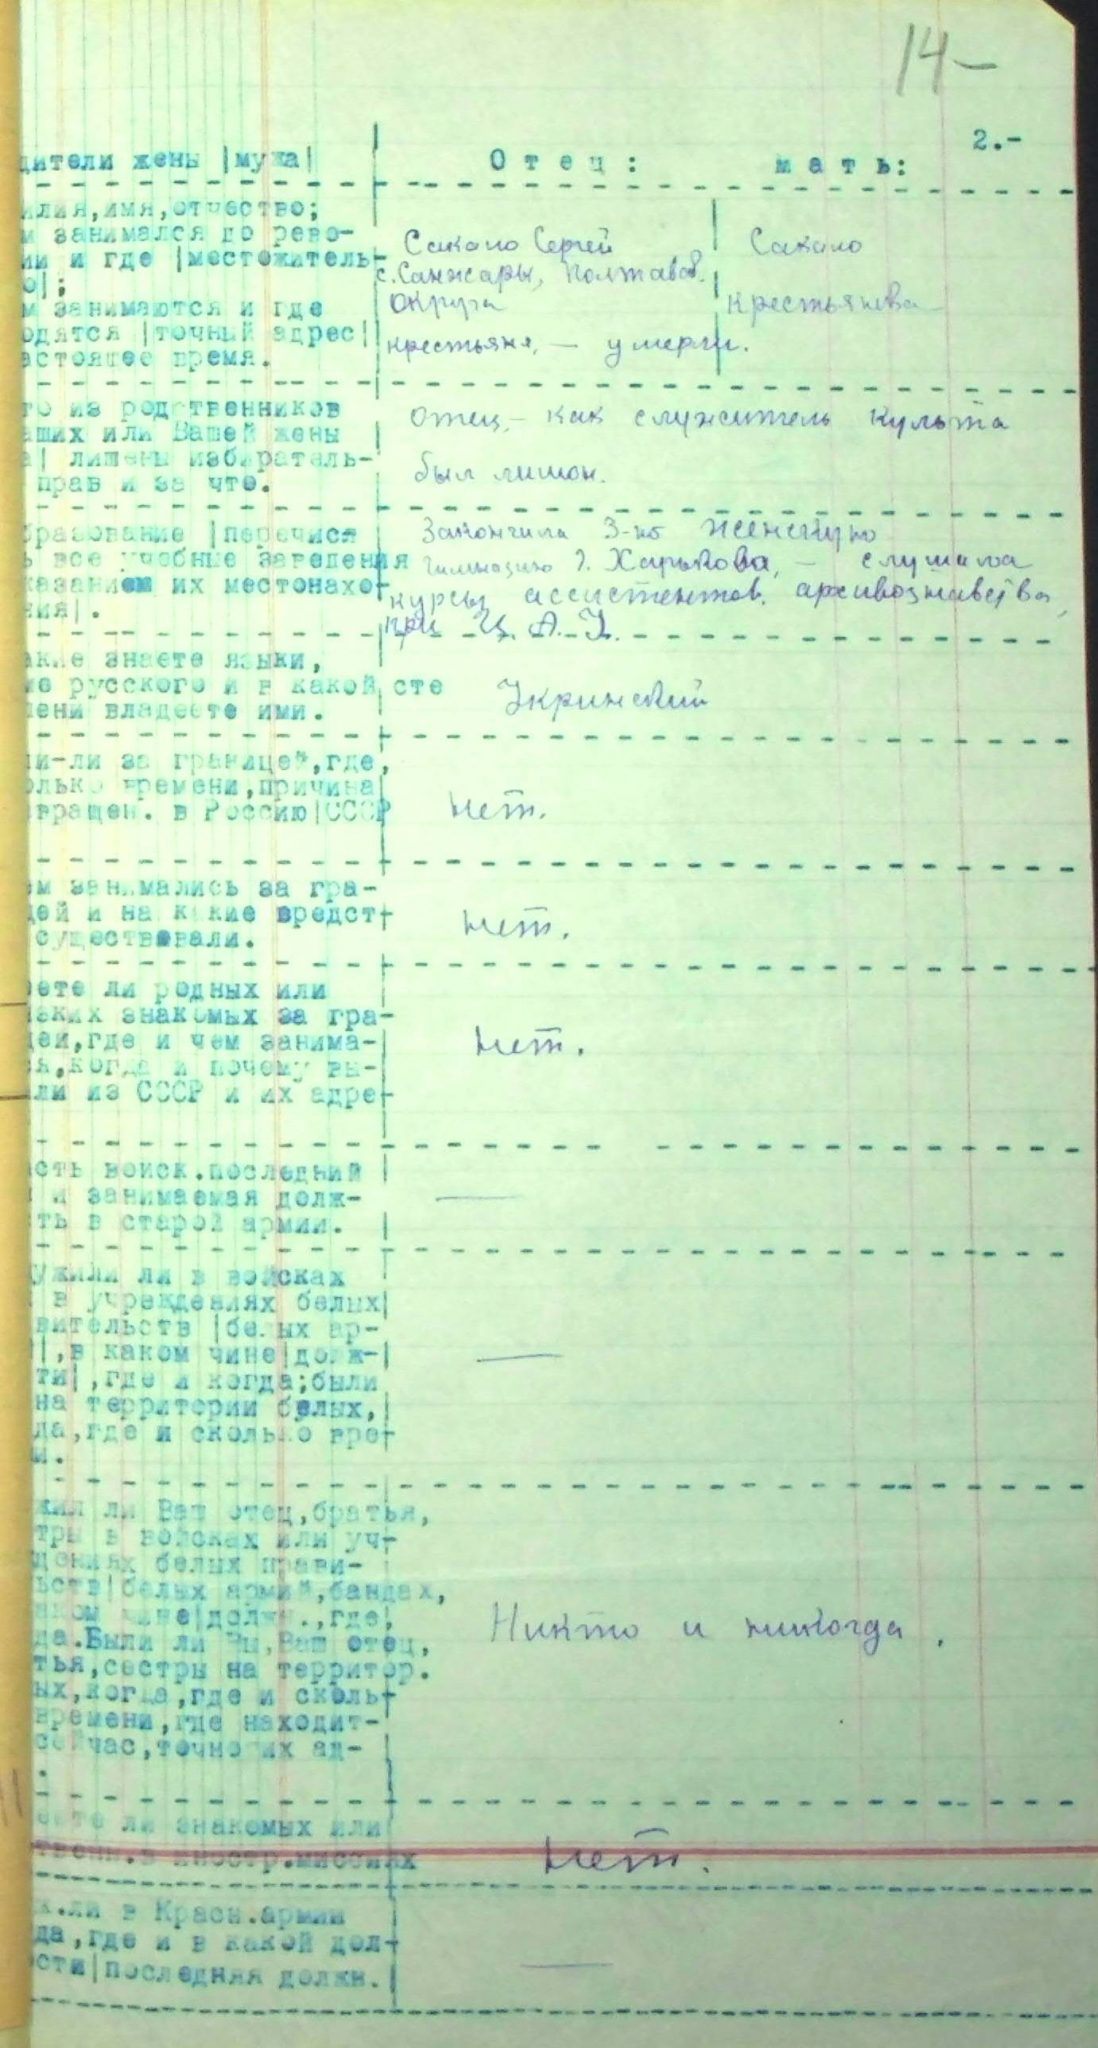 14-
2.-
дители жены |мужа| Отец: мать:
илия,имя,отчество;
м занимался до рево-
ии и где |местожитель-
о|;
м занимаются и где
одятся |точный адрес|
астоящее время.
Сакало Сергей
с. Санжары, Полтавск.
округа
крестьяне, — умерли.
Сакало
крестьянка
то из родственников
аших или Вашей жены
а| лишены избиратель-
прав и за что.
отец,- как служитель культа
был лишон.
бразование |перечисля
ь все учебные заведения
казанием их местонахо-
ния|.
Закончила 3-ю женскую
гимназию г. Харькова, — слушала
курсы ассистентов архивознавства,
при Ц.А.У.
акие знаете языки,
ме русского и в какой сте
пени владеете ими.
Укринский
ли-ли за границей,где,
олько времени,причина
звращен. в Россию|СССР
нет.
ем занимались за гра-
цей и на какие вредст-
существовали.
нет.
еете ли родных или
изких знакомых за гра-
цей,где и чем занима-
ся,когда и почему вы-
ли из СССР и их адре-
нет.
асть войск.последний
и занимаемая долж-
ть в старой армии.
—
ужили ли в войсках
в учреждениях белых
вительств |белых ар-
|,в каком чине|долж-
ти|,где и когда;были
на территории белых,
да,где и сколько вре-
и.
—
жил ли Ваш отец,братья,
тры в войсках или уч-
дениях белых прави-
ьств|белых армий,бандах,
аком чине|должн.,где,
да.Были ли Вы,Ваш отец,
тья,сестры на территор.
ых,когда,где и сколь-
времени,где находит-
сейчас,точно их ад-
.
Никто и никогда.
еете ли знакомых или
твенн.в иностр.миссиях
нет.
ж.ли в Красн.армии
да,где и в какой дол-
ости|последняя должн.|
—